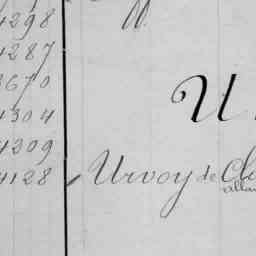 4298
4287
3670
4304
4209
U
4128 Urvoy de